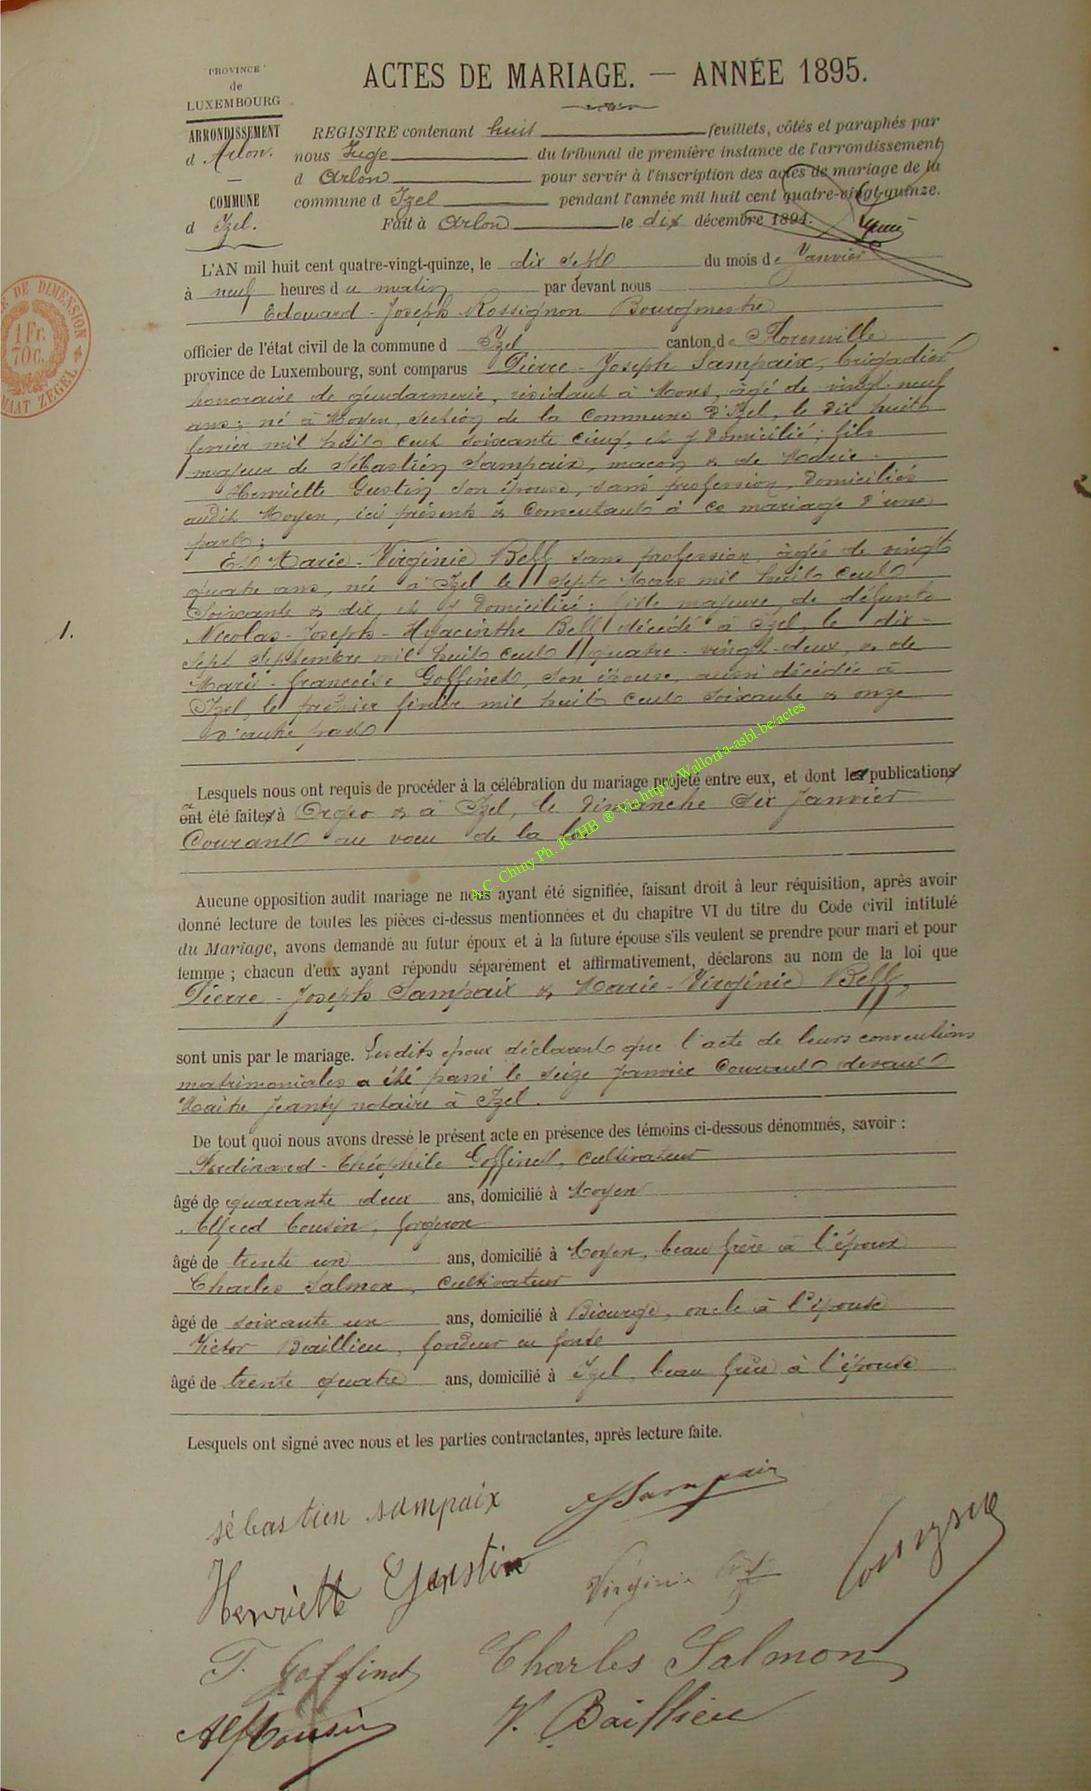 PROVINCE
de
LUXEMBOURG
ARRONDISSEMENT
d'Arlon.
COMMUNE
d Izel.
ACTES DE MARIAGE. — ANNÉE 1895.
REGISTRE contenant huit feuillets, côtés et paraphés par
nous Juge du tribunal de première instance de l'arrondissement
d Arlon pour servir à l'inscription des actes de mariage de la
commune d Izel pendant l'année mil huit cent quatre-vingt-quinze.
Fait à Arlon le dix décembre 1894.
DE DIMENSION
1 Fr.
70c.
MAAT ZEGEL
1.
L'AN mil huit cent quatre-vingt-quinze, le dix sept du mois de Janvier
à neuf heures du matin par devant nous
Edouard-Joseph Rossignon Bourgmestre
officier de l'état civil de la commune d Izel canton de Florenville
province de Luxembourg, sont comparus Pierre-Joseph Sampaix, brigadier
honoraire de gendarmerie, résidant à Mons, âgé de vingt-neuf
ans; né à Moyen, section de la Commune d'Izel, le dix huit
février mil huit cent soixante cinq, et y domicilié; fils
majeur de Sébastien Sampaix, maçon & de Marie-
Henriette Gustin son épouse, sans profession, domiciliés
audit Moyen, ici présents & Consentants à ce mariage d'une
part;
Et Marie-Virginie Belf sans profession, âgée de vingt
quatre ans, née à Izel le sept Mars mil huit cent
soixante & dix, et y domiciliée; fille majeure, de défunts
Nicolas-Joseph-Hyacinthe Belf décédé à Izel, le dix-
sept septembre mil huit cent quatre-vingt-deux, & de
Marie-françoise Goffinet, son épouse, aussi décédée à
Izel, le premier février mil huit cent soixante & onze
d'autre part
Lesquels nous ont requis de procéder à la célébration du mariage projeté entre eux, et dont les publications
ont été faites à Orgeo & à Izel, le dimanche six Janvier
Courant au voeu de la loi
A.C. Chiny Ph. JC-HB ® Via http://Wallonia-asbl.be/actes
Aucune opposition audit mariage ne nous ayant été signifiée, faisant droit à leur réquisition, après avoir
donné lecture de toutes les pièces ci-dessus mentionnées et du chapitre VI du titre du Code civil intitulé
du Mariage, avons demandé au futur époux et à la future épouse s'ils veulent se prendre pour mari et pour
femme ; chacun d'eux ayant répondu séparément et affirmativement, déclarons au nom de la loi que
Pierre-Joseph Sampaix & Marie-Virginie Belf,
sont unis par le mariage. Lesdits époux déclarent que l'acte de leurs conventions
matrimoniales a été passé le seize Janvier Courant devant
Maître Jeanty notaire à Izel.
De tout quoi nous avons dressé le présent acte en présence des témoins ci-dessous dénommés, savoir :
Ferdinand-Théophile Goffinet, cultivateur
âgé de quarante deux ans, domicilié à Moyen
Alfred Cousin, forgeron
âgé de trente un ans, domicilié à Moyen, beau frère à l'époux
Charles Salmon, cultivateur
âgé de soixante un ans, domicilié à Biourge, oncle à l'épouse
Victor Baillieu, fondeur en fonte
âgé de trente quatre ans, domicilié à Izel, beau frère à l'épouse
Lesquels ont signé avec nous et les parties contractantes, après lecture faite.
sébastien sampaix
Sampaix
Henriette Gustin
Virginie
T. Goffinet
Charles Salmon
Alf Cousin
V. Baillieu